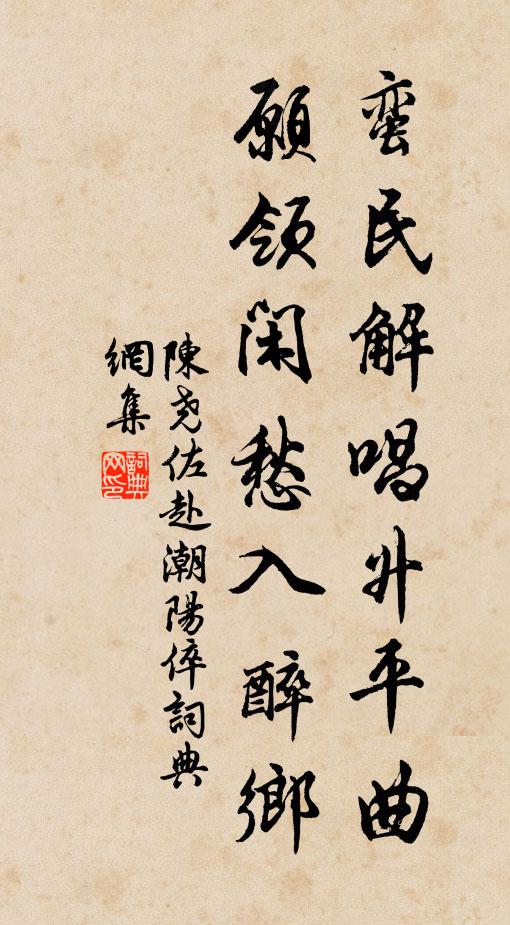 蛮民解唱升平曲
願領闲愁入醉鄉
陳尧佐赴潮陽倅詞典
網集
詞典
网印